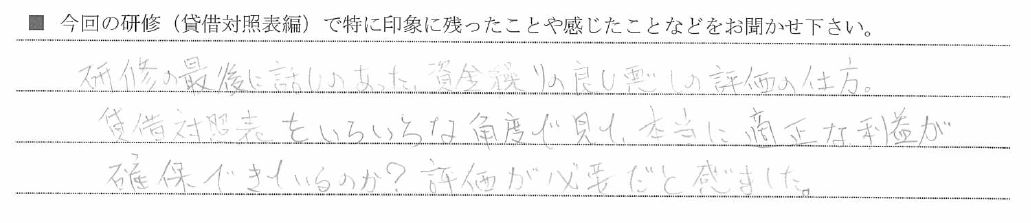 ■ 今回の研修（貸借対照表編）で特に印象に残ったことや感じたことなどをお聞かせ下さい。
研修の最後に話しのあった、資金繰りの良し悪しの評価の仕方。
貸借対照表をいろいろな角度で見て、本当に適正な利益が
確保できているのか？評価が必要だと感じました。